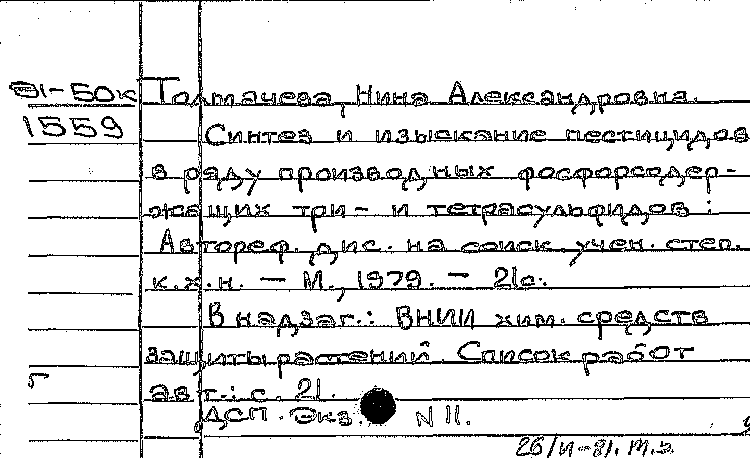 Э1-50к Толмачева, Нина Александровна.
1559 Синтез и изыскание пестицидов
в ряду производных фосфорсодер-
жащих три- и тетрасульфидов :
Автореф. дис. на соиск. учен. степ.
к.х.н. — М., 1979. — 21с.
В надзаг.: ВНИИ хим. средств
защиты растений. Список работ
авт.: с. 21.
ДСП. Экз. N 11.